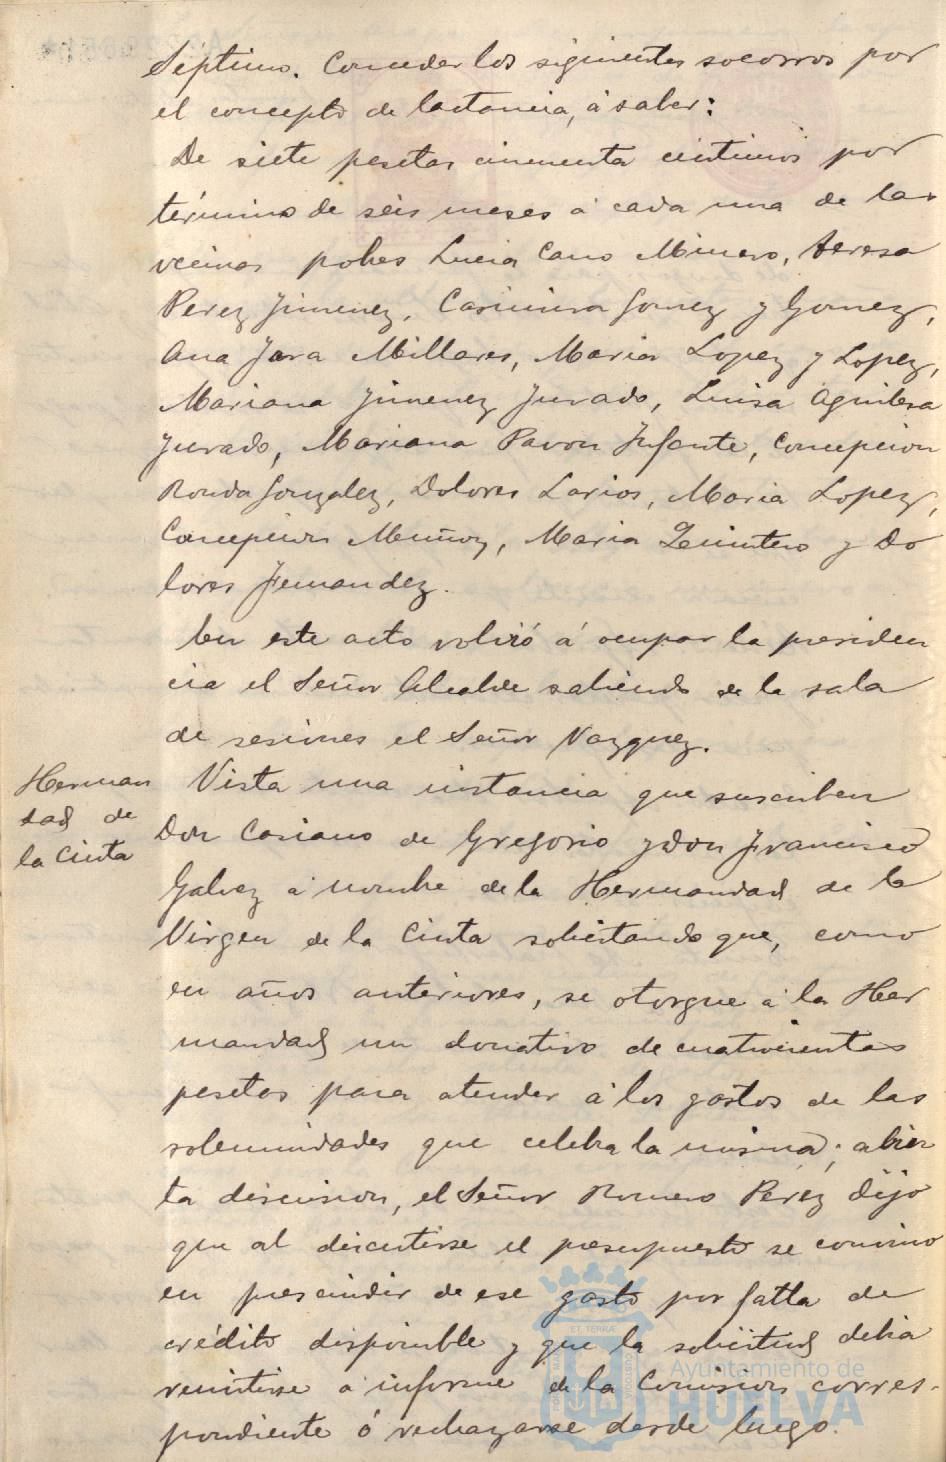 Séptimo. Conceder los siguientes socorros por
el concepto de lactancia, á saber:
De siete pesetas cincuenta céntimos por
término de seis meses á cada una de las
vecinas pobres Lucia Cano Minero, Teresa
Perez Jimenez, Casimira Gomez y Gomez,
Ana Jara Millares, Maria Lopez y Lopez,
Mariana Jimenez Jurado, Luisa Aguilera
Jurado, Mariana Pavon Infante, Concepcion
Ronda Gonzalez, Dolores Larios, Maria Lopez,
Concepcion Muñoz, Maria Quintero y Do
lores Fernandez.
En este acto volvió á ocupar la presiden
cia el Señor Alcalde saliendo de la sala
de sesiones el Señor Vazquez.
Herman
dad de
la Cinta
Vista una instancia que suscriben
Don Casiano de Gregorio y Don Francisco
Galvez á nombre de la Hermandad de la
Virgen de la Cinta solicitando que, como
en años anteriores, se otorgue á la Her
mandad un donativo de cuatrocientas
pesetas para atender á los gastos de las
solemnidades que celebra la misma; abier
ta discusion, el Señor Romero Perez dijo
que al discutirse el presupuesto se convino
en prescindir de ese gasto por falta de
crédito disponible y que la solicitud debia
remitirse á informe de la Comision corres-
pondiente ó rechazarse desde luego.
Ayuntamiento de
HUELVA